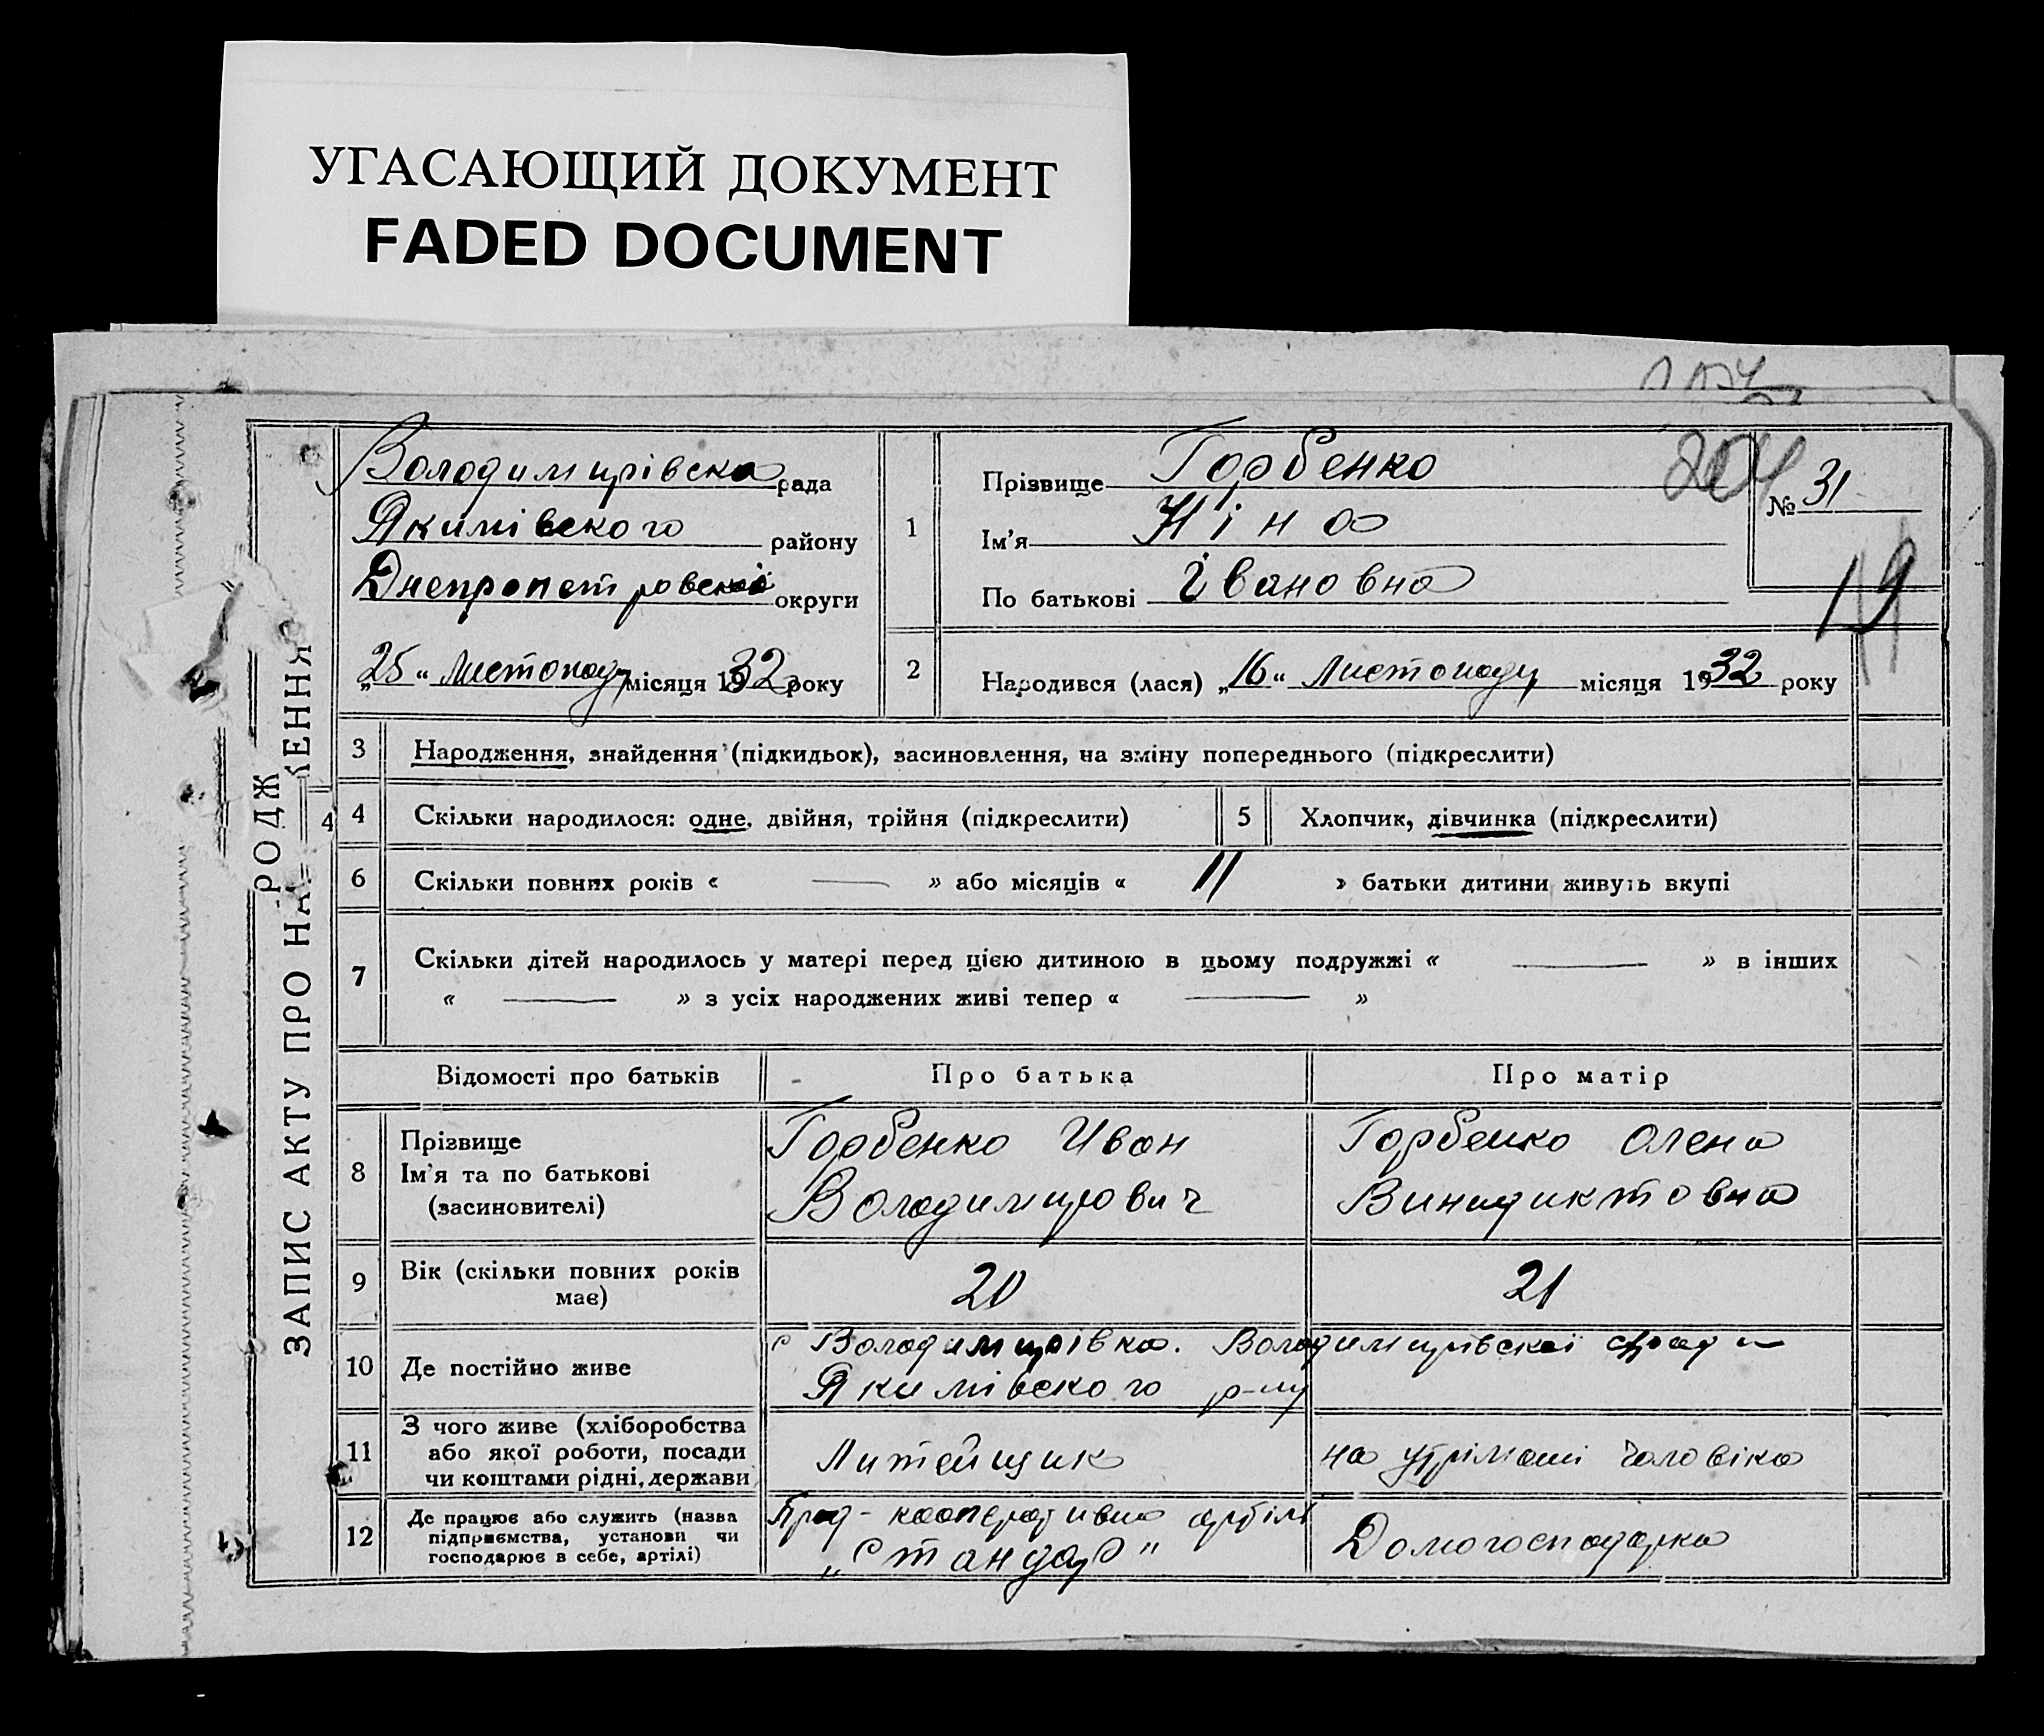 УГАСАЮЩИЙ ДОКУМЕНТ
FADED DOCUMENT
ЗАПИС АКТУ ПРО НА РОДЖ ЖЕННЯ
Володимирівска рада
Якимівского району
Днепропетровскої округи
„25“ Листопаду місяця 1932 року
1
Прізвище Горбенко
Ім'я Ніна
По батькові Івановна
204
№ 31
19
2
Народився (лася) „16“ Листопаду місяця 1932 року
3 Народження, знайдення (підкидьок), засиновлення, на зміну попереднього (підкреслити)
4 4 Скільки народилося: одне, двійня, трійня (підкреслити)
5 Хлопчик, дівчинка (підкреслити)
6 Скільки повних років « — » або місяців « 11 » батьки дитини живуть вкупі
7 Скільки дітей народилось у матері перед цією дитиною в цьому подружжі « — » в інших
« — » з усіх народжених живі тепер « — »
Відомості про батьків Про батька Про матір
8 Прізвище
Ім'я та по батькові
(засиновителі)
Горбенко Иван
Володимирович
Горбенко Олена
Винидиктовна
9 Вік (скільки повних років
має)
20
21
10 Де постійно живе
с Володимирівка. Володимирівскої с/ради
Якимівского р-ну
11 З чого живе (хліборобства
або якої роботи, посади
чи коштами рідні, держави
Литейщик
на утрімані чоловіка
12 Де працює або служить (назва
підприємства, установи чи
господарює в себе, артілі)
Прод-кооперативна артіль
„Стандар"
Домогосподарка